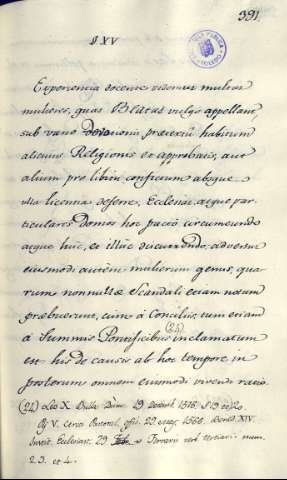 391.
§ XV
Experientia docente videmus multas
mulieres, quas Beatas vulgo appellant,
sub vano devotionis prætextu habitum
alicuius Religionis et approbatæ, aut
alium pro libito confictum absque
ulla licentia deferre, Ecclesias atque par-
ticulares domos hoc pacto circumeundo
atque huc, et illuc discurrendo, adversus
eiusmodi autem mulierum genus, qua-
rum nonnullæ Scandali etiam notam
præbuerunt, cum à Conciliis, tum etiam
à Summis Pontificibus (24) inclamatum
est his de causis ab hoc tempore in
posterum omnem eiusmodi vivendi ratio-
(24) Leo X. Bulla 19 1516. § 19 et 20.
V. Pastoral. offic. 29 1566. Bened. XIV.
Instit. Ecclesiast. 29 num.
23. et 4.